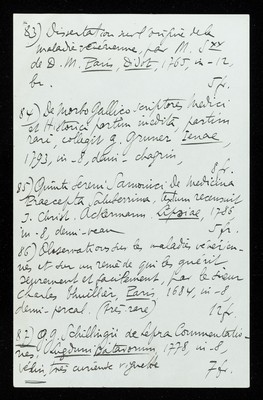 83) Dissertation sur l'origine de la
maladie vénérienne, par M. S**
de D. M. Paris, Didot, 1765, in-12,
br. 5 f.
84) De Morbo Gallico Scriptores Medici
et Historici partim inediti, partim
rari, collegit g. Gruner. Ienae,
1793, in-8, demi-chagrin,
8 f.
85) Quinti Sereni Samonici De Medicina
Praecepta Saluberrima, textum recensuit
J. Christ. Ackermann. Lipsiae, 1786
in-8, demi-veau 5 f.
86) Observations sur les maladies vénérien-
nes et sur un remède qui les guérit
seurement et facilement, par le sieur
Charles Thuillier, Paris, 1684, in-8
demi-percal. (très rare) 12 f.
87) G. G. Schillingii de Lepra Commentatio-
nes, Lugduni Batavorum, 1778, in-8,
vélin, très curieuse vignette 7 f.